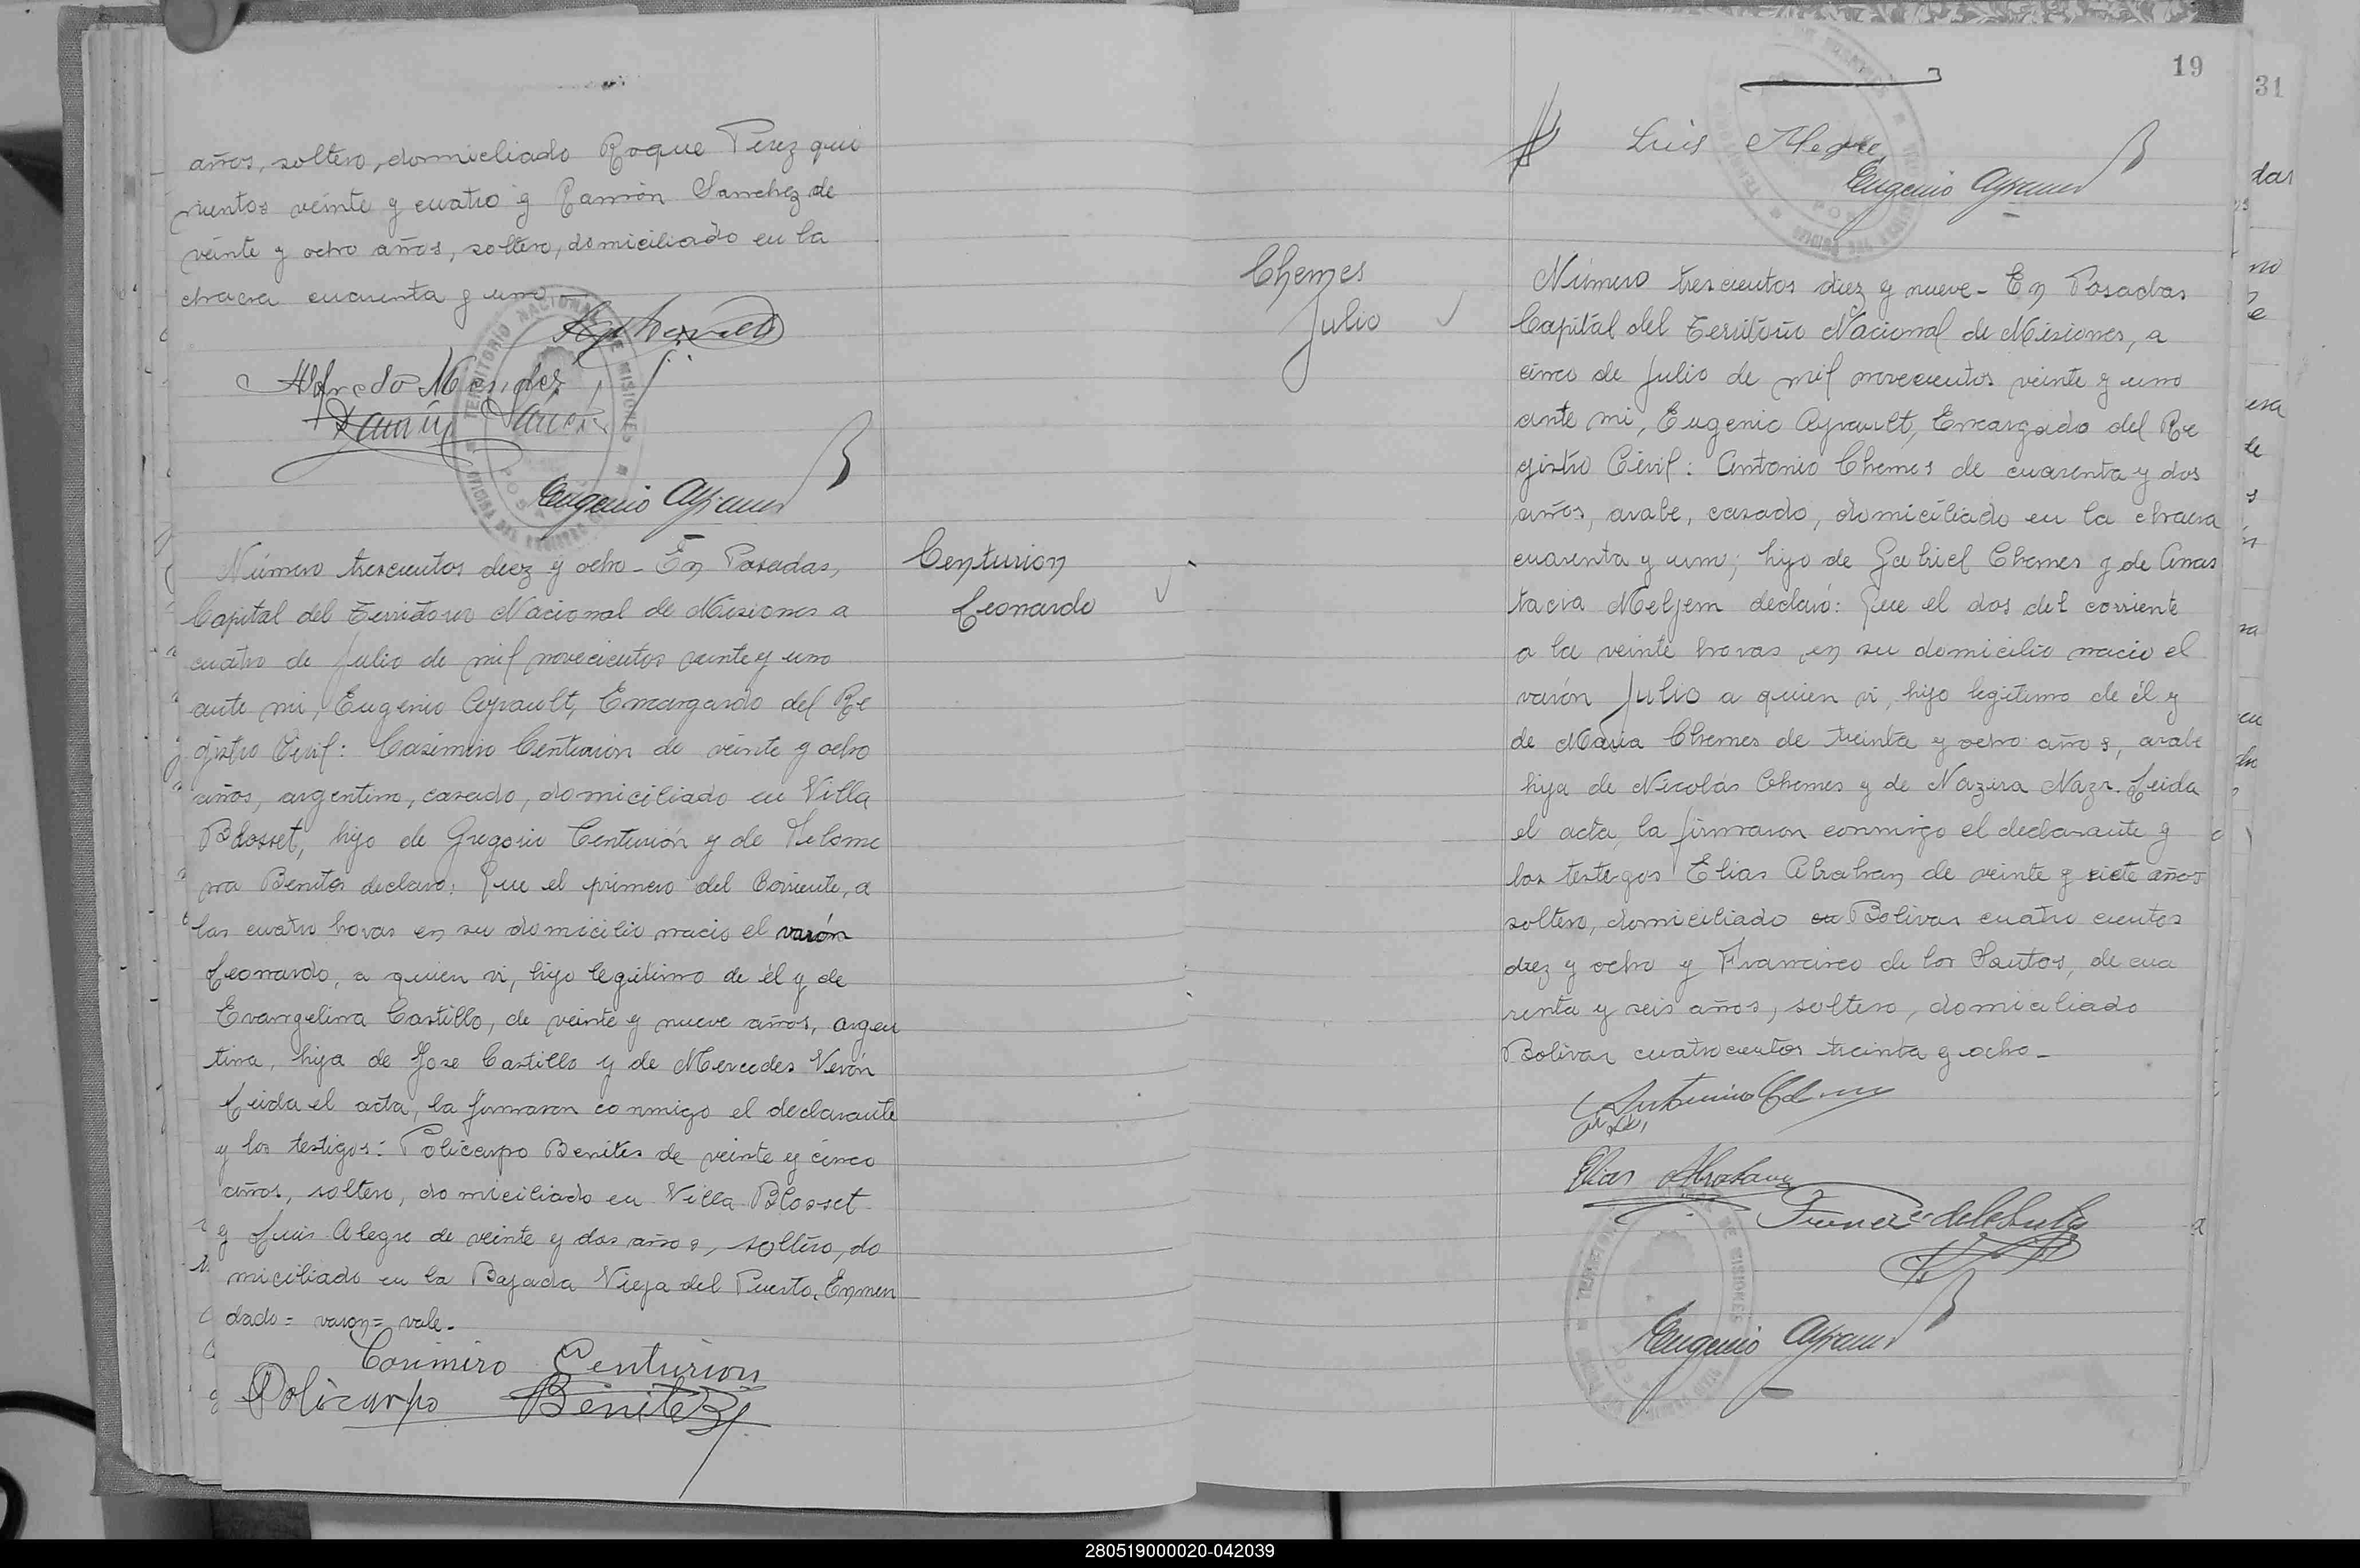 años, soltero, domiciliado Roque Perez qui
nientos veinte y cuatro y Ramón Sanchez de
veinte y ocho años, soltero, domiciliado en la
chacra cuarenta y uno
Alfredo Mendez
Ramón
Eugenio Ayrault
TERRITORIO NACIONAL DE MISIONES
Número trescientos diez y ocho - En Posadas,
Capital del Territorio Nacional de Misiones a
cuatro de Julio de mil novecientos veinte y uno
ante mi, Eugenio Ayrault, Encargado del Re
gistro Civil: Casimiro Centurión de veinte y ocho
años, argentino, casado, domiciliado en Villa
Blosset, hijo de Gregorio Centurión y de Filome
na Benites declaro: Que el primero del Corriente, a
las cuatro horas en su domicilio nacio el varón
Leonardo, a quien vi, hijo legitimo de él y de
Evangelina Castillo, de veinte y nueve años, argen
tina, hija de Jose Castillo y de Mercedes Verón
Leida el acta, la firmaron conmigo el declarante
y los testigos: Policarpo Benites de veinte y cinco
años, soltero, domiciliado en Villa Blosset
y Luis Alegre de veinte y dos años, soltero, do
miciliado en la Bajada Vieja del Puerto. Enmen
dado = varon = vale.
Casimiro Centurion
Policarpo Benitez
Centurion
Leonardo
19
31
Luis Alegre
Eugenio Ayrault
Chemes
Julio
Número trescientos diez y nueve - En Posadas
Capital del Territorio Nacional de Misiones, a
cinco de Julio de mil novecientos veinte y uno
ante mi, Eugenio Ayrault, Encargado del Re
gistro Civil: Antonio Chemes de cuarenta y dos
años, arabe, casado, domiciliado en la chacra
cuarenta y uno; hijo de Gabriel Chemes y de Anas
tacia Meljem declaró: Que el dos del corriente
a la veinte horas, en su domicilio nacio el
varón Julio a quien vi, hijo legitimo de él y
de Maria Chemes de treinta y ocho años, arabe
hija de Nicolás Chemes y de Nazira Nazr. Leida
el acta, la firmaron conmigo el declarante y
los testigos Elias Abrahan de veinte y siete años
soltero, domiciliado en Bolivar cuatro cientos
diez y ocho y Francisco de los Santos, de cua
renta y seis años, soltero, domiciliado
Bolivar cuatrocientos treinta y ocho -
Antonio
Elias Abraham
Eugenio Ayrault
280519000020-042039